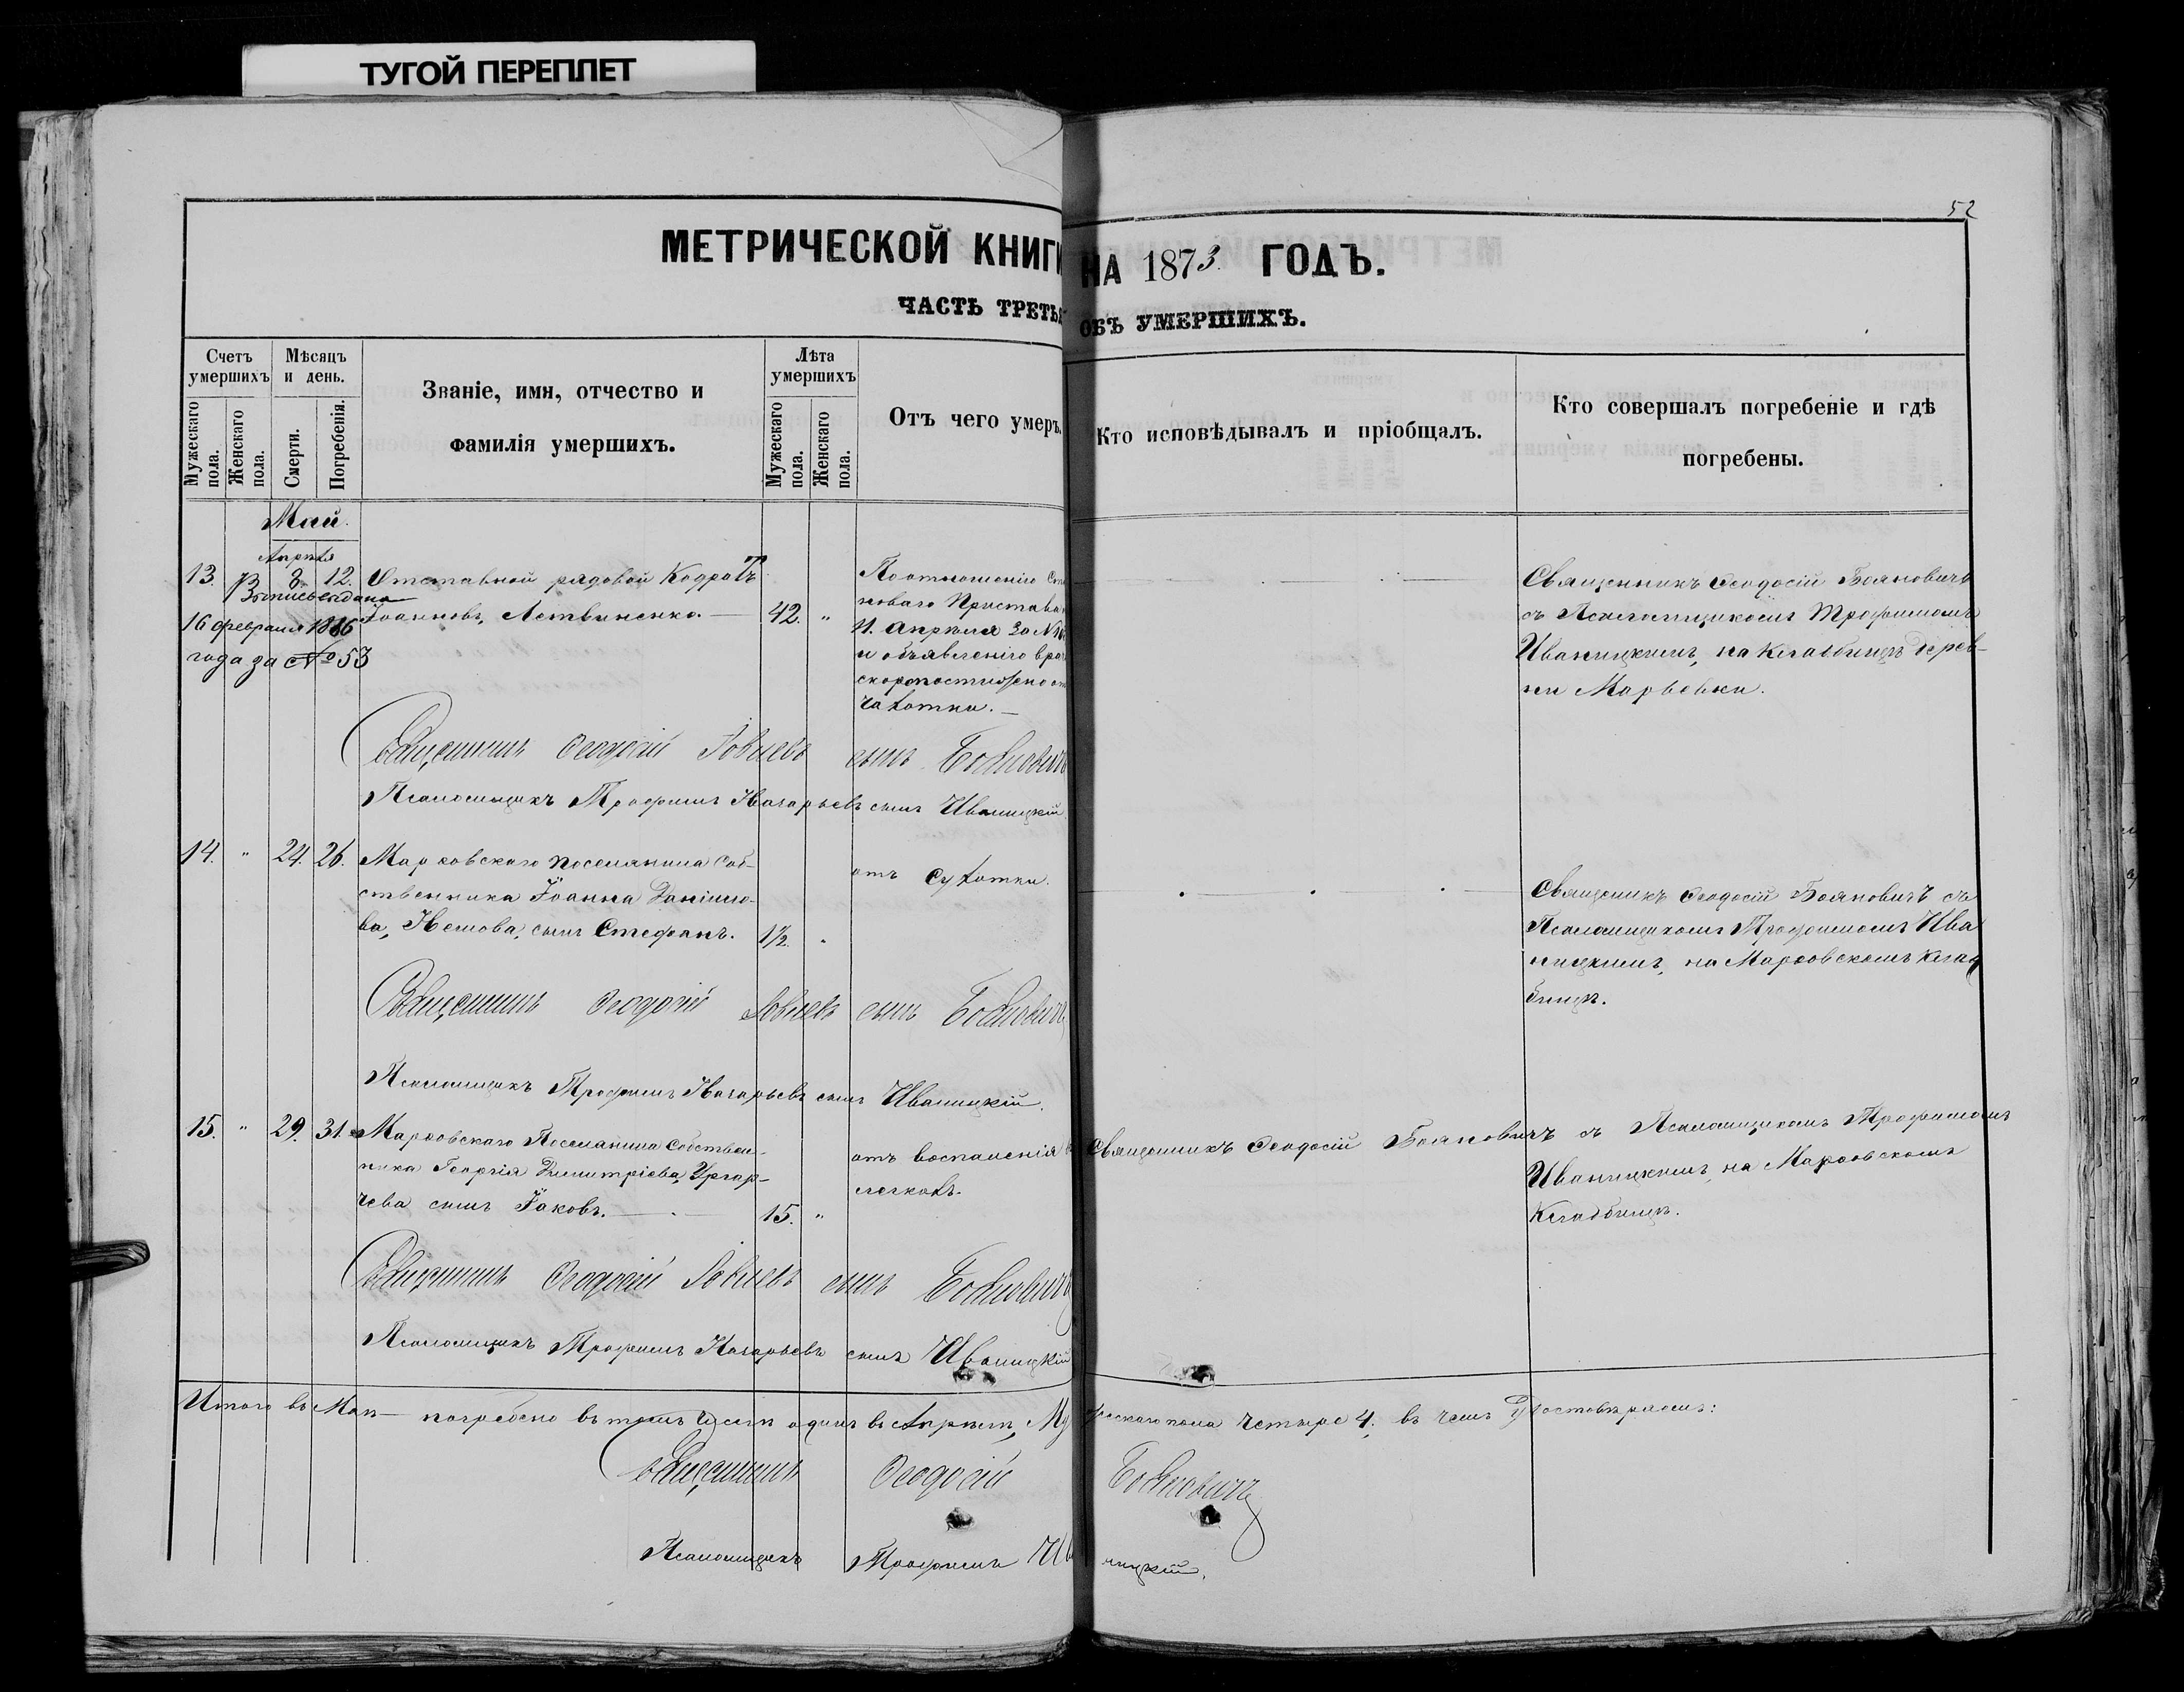 ТУГОЙ ПЕРЕПЛЕТ
52
МЕТРИЧЕСКОЙ КНИГИ НА 1873. ГОДЪ.
ЧАСТЬ ТРЕТЬЯ ОБЪ УМЕРШИХЪ.
Счетъ умершихъ
Мужескаго пола.
Женскаго пола.
Мѣсяцъ и день.
Смерти.
Погребенія.
Званіе, имя, отчество и
фамилія умершихъ.
Лѣта умершихъ
Мужескаго пола.
Женскаго пола.
Отъ чего умеръ.
Кто исповѣдывалъ и пріобщалъ.
Кто совершалъ погребеніе и гдѣ
погребены.
Май.
Апрѣля
13. 8. 12. Отставной рядовой Кодратъ
Іоанновъ, Летвиненко. 42. "
16 февраля 1886
года за № 53
По отношенію
новаго Пристава
11. Апрѣля за №
и объявленію
скоропостижно
чахотки.
Священникъ Ѳеодосій Бояновичъ
съ Псаломщикомъ Трофимомъ
Иваницкимъ, на кладбищѣ дерев-
ни Марьевки.
Священникъ Ѳеодосій сынъ Бояновичъ
Псаломщикъ Трофимъ Назарьевъ сынъ Иваницкій.
14. " 24. 26. Марковскаго поселянина соб-
ственника Іоанна Данііло-
ва, сынъ Стефанъ. 1½. "
отъ сухотки.
Священникъ Ѳеодосій Бояновичъ съ
Псаломщикомъ Трофимомъ Ива
ницкимъ, на Марковскомъ клад
бищѣ.
Священникъ Ѳеодосій сынъ Бояновичъ
Псаломщикъ Трофимъ Назарьевъ сынъ Иваницкій.
15. " 29. 31. Марковскаго Поселянина Собствен-
ника Георгія Димитріева,
сынъ Іаковъ. 15. "
отъ воспаленія
легкихъ.
Священникъ Ѳеодосій Бояновичъ съ Псаломщикомъ Трофимомъ
Иваницкимъ, на Марковскомъ
Кладбищѣ.
Священникъ Ѳеодосій сынъ Бояновичъ
Псаломщикъ Трофимъ Назарьевъ сынъ Иваницкій
Итого въ Маѣ погребено въ томъ числѣ одинъ въ Апрѣлѣ, Мужескаго пола четыре 4; въ чемъ удостовѣряемъ:
Священникъ Ѳеодосій Бояновичъ
Псаломщикъ Трофимъ Иваницкій.